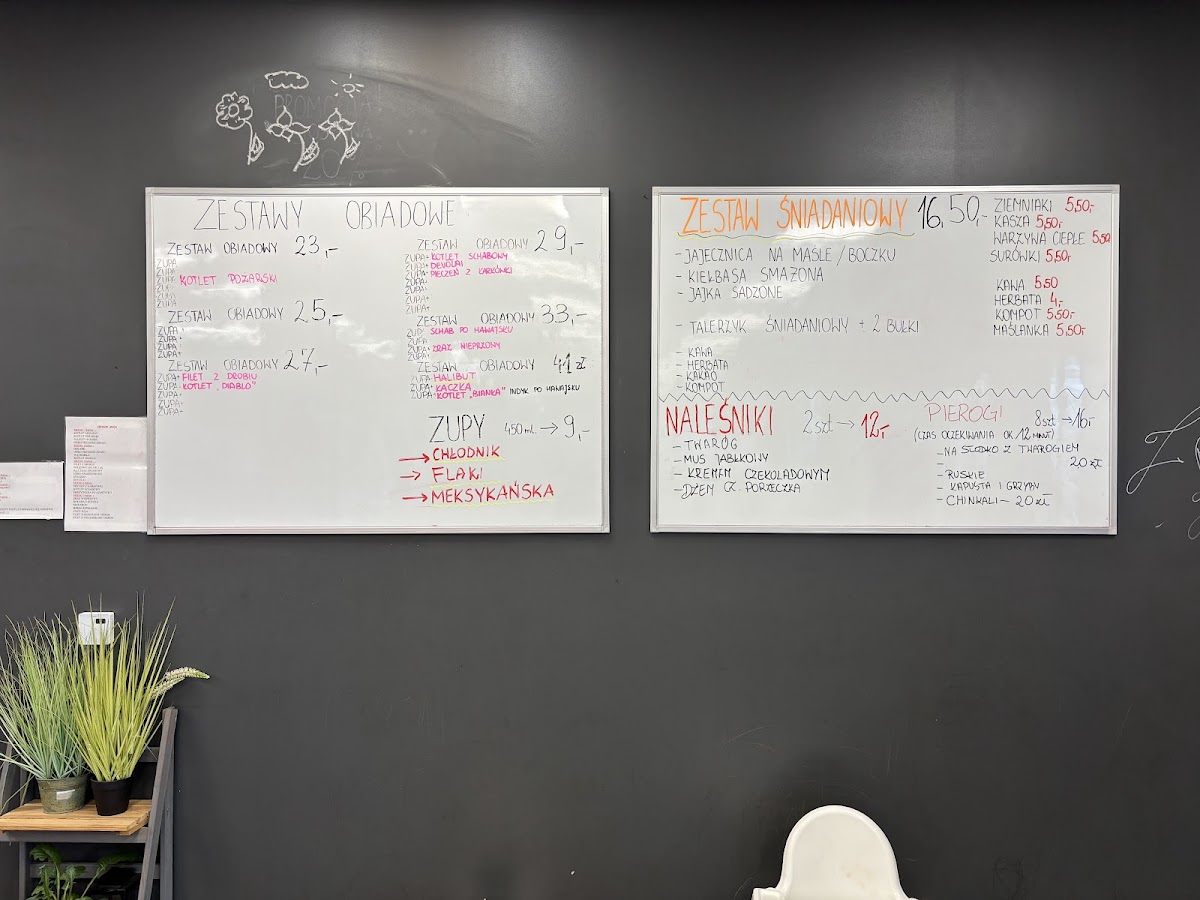 ZESTAWY OBIADOWE
ZESTAW OBIADOWY 23,-
ZUPA
ZUPA
ZUPA KOTLET POŻARSKI
ZUPA
ZUPA
ZUPA
ZESTAW OBIADOWY 25,-
ZUPA+
ZUPA+
ZUPA+
ZUPA+
ZESTAW OBIADOWY 27,-
ZUPA+ FILET Z DROBIU
ZUPA+ KOTLET „DIABLO"
ZUPA+
ZUPA+
ZUPA+
ZESTAW OBIADOWY 29,-
ZUPA+ KOTLET SCHABOWY
ZUPA+ DEVOLAI
ZUPA+ PIECZEŃ Z KARKÓWKI
ZUPA+
ZUPA+
ZUPA+
ZUPA+
ZESTAW OBIADOWY 33,-
ZUPA SCHAB PO HAWAJSKU
ZUPA
ZUPA+ ZRAZ WIEPRZOWY
ZUPA+
ZESTAW OBIADOWY 41 zł
ZUPA+ HALIBUT
ZUPA+ KACZKA
ZUPA+ KOTLET „BIANKA" INDYK PO HAWAJSKU
ZUPY 450 ml. → 9,-
→ CHŁODNIK
→ FLAKI
→ MEKSYKAŃSKA
ZESTAW ŚNIADANIOWY 16,50,-
- JAJECZNICA NA MAŚLE / BOCZKU
- KIEŁBASA SMAŻONA
- JAJKA SADZONE
- TALERZYK ŚNIADANIOWY + 2 BUŁKI
- KAWA
- HERBATA
- KAKAO
- KOMPOT
ZIEMNIAKI 5,50,-
KASZA 5,50,-
WARZYWA CIEPŁE 5,50
SURÓWKI 5,50,-
KAWA 5,50
HERBATA 4,-
KOMPOT 5,50,-
MAŚLANKA 5,50,-
NALEŚNIKI 2szt → 12,-
- TWARÓG
- MUS JABŁKOWY
- KREMEM CZEKOLADOWYM
- DŻEM CZ. PORZECZKA
PIEROGI 8szt → 16,-
(CZAS OCZEKIWANIA OK 12 MINUT)
- NA SŁODKO Z TWAROGIEM
- 20 zł
- RUSKIE
- KAPUSTA I GRZYBY
- CHINKALI - 20 zł